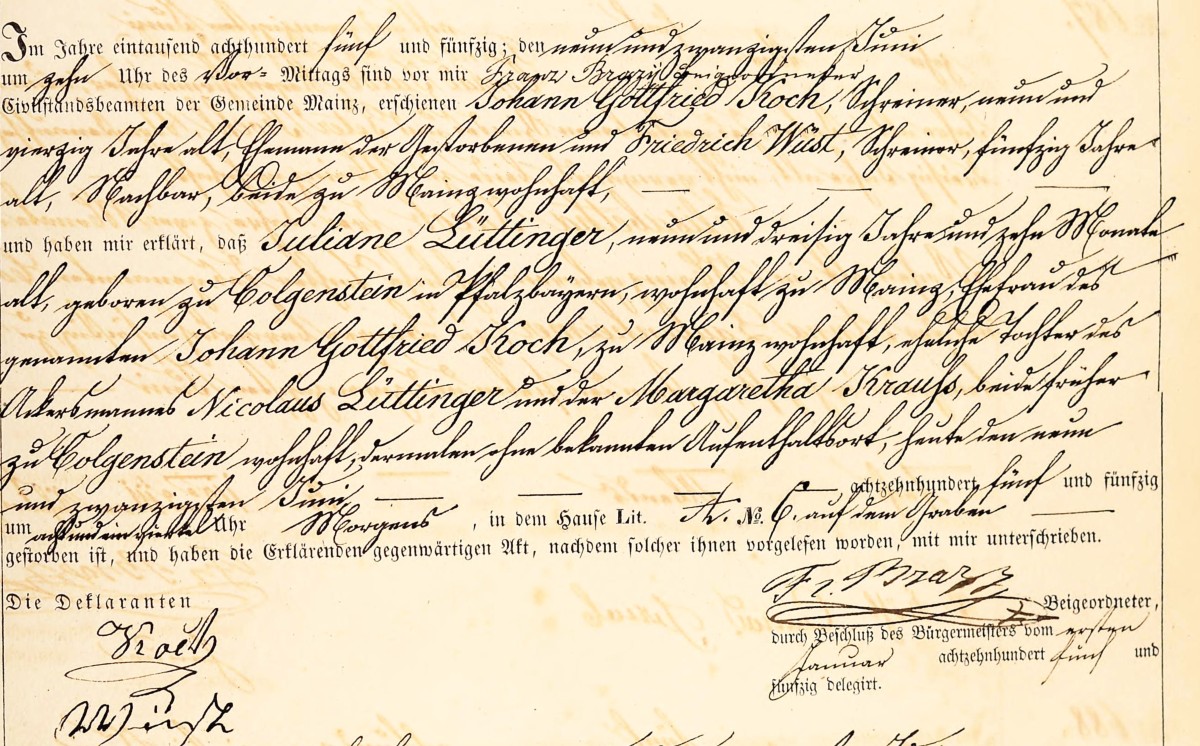 Im Jahre eintausend achthundert fünf und fünfzig; den neun und zwanzigsten Juni
um zehn Uhr des Vor- Mittags sind vor mir Franz Brazy Beigeordneter
Civilstandsbeamten der Gemeinde Mainz, erschienen Johann Gottfried Koch, Schreiner, neun und
vierzig Jahre alt, Ehemann der Gestorbenen und Friedrich Wüst, Schreiner, fünfzig Jahre
alt, Nachbar, beide zu Mainz wohnhaft,
und haben mir erklärt, daß Juliane Lüttinger, neun und dreisig Jahre und zehn Monate
alt, geboren zu Colgenstein in Pfalzbayern, wohnhaft zu Mainz, Ehefrau des
genannten Johann Gottfried Koch, zu Mainz wohnhaft, eheliche Tochter des
Ackersmannes Nicolaus Lüttinger und der Margaretha Krauß, beide früher
zu Colgenstein wohnhaft, dermalen ohne bekannten Aufenthaltsort, heute den neun
und zwanzigsten Juni achtzehnhundert fünf und fünfzig
um acht und ein viertel Uhr Morgens, in dem Hause Lit. № 6. auf dem Graben
gestorben ist, und haben die Erklärenden gegenwärtigen Akt, nachdem solcher ihnen vorgelesen worden, mit mir unterschrieben.
Die Deklaranten
Koch
Wüst
Fr. Brazy
Beigeordneter,
durch Beschluß des Bürgermeisters vom ersten
Januar achtzehnhundert fünf und
fünfzig delegirt.